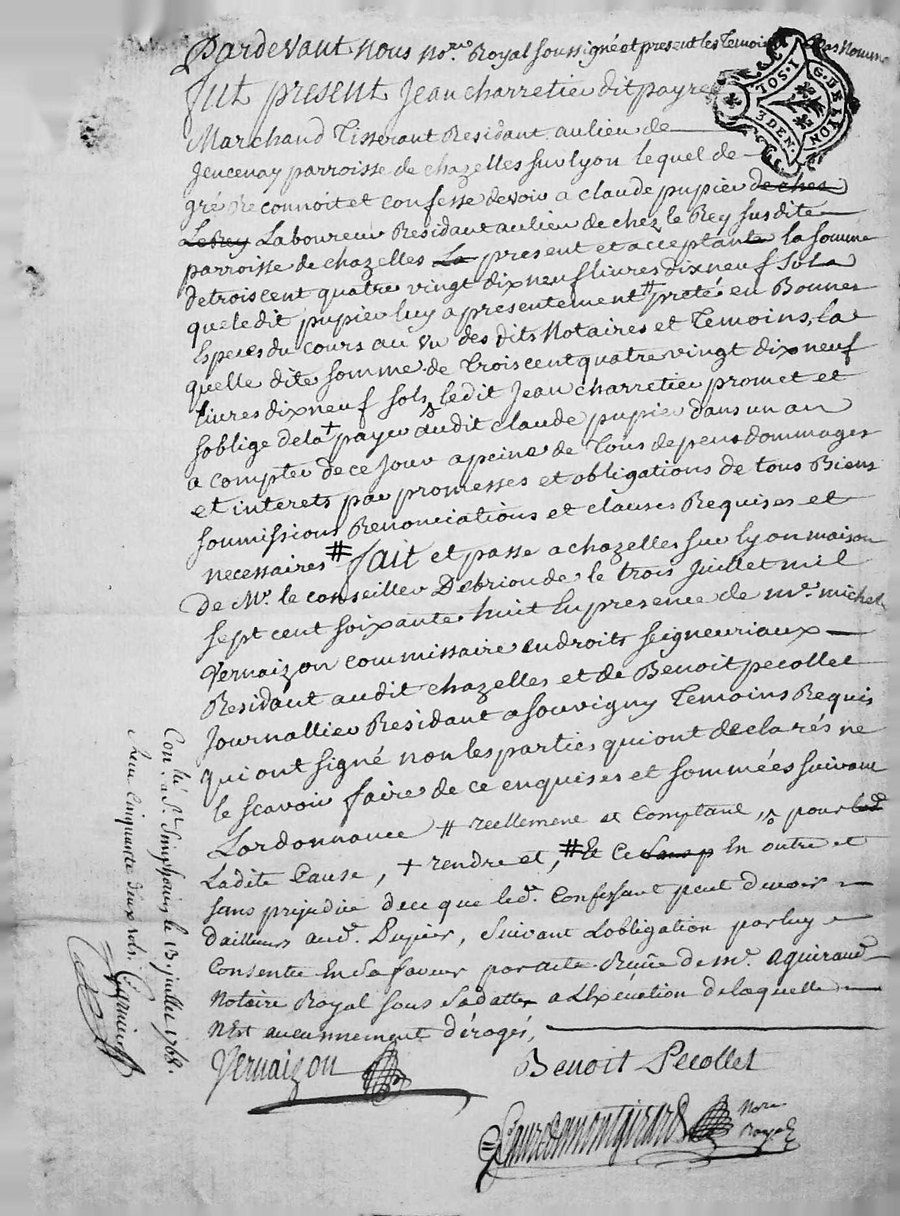 Pardevant nous No.re Royal soussigné et present les Temoins Bas Nommés
fut present Jean charretier dit payre
Marchand Tisserant Residant au lieu de
Jeucenay parroisse de chazelles sur lyon lequel de
gré Reconnoit et confesse devoir a claude pupier de chez
Le Rey Laboureur Residant au lieu de chez le Rey susdite
parroisse de chazelles La present et acceptant la somme
de trois cent quatre vingt dix neuf livres dix neuf sols
que ledit pupier luy a presentement # preté en Bonnes
Especes du cours au vu des dits Notaires et Temoins, la
quelle dite somme de trois cent quatre vingt dix neuf
livres dix neuf sols, ledit Jean charretier promet et
soblige de la + payer audit claude pupier dans un an
a compter de ce Jour a peine de Tous depens dommages
et interets par promesses et obligations de tous Biens
soumissions Renonciations et clauses Requises et
necessaires # fait et passe a chazelles sur lyon maison
de Mr. le conseiller Debrioude le trois Juillet mil
sept cent soixante huit En presence de me. michel
Vernaizon commissaire en droits seigneuriaux
Residant audit chazelles et de Benoit pecollet
Journallier Residant a souvigny Temoins Requis
qui ont signé non les parties qui ont declarés ne
le scavoir faire de ce enquises et sommées suivant
Lordonnance # reellement et Comptant, pour
Ladite Cause, + rendre et, # Et Ce En outre et
sans prejudice de ce que led. Confessant peut devoir
d'ailleurs aud. Pupier, suivant Lobligation par luy
Consentie En sa faveur par acte Reçue de Me. aguiraud
Notaire Royal sous sa datte a Lexécution de laquelle
n'Est aucunnement dérogés,
Vernaizon
Benoit Pecollet
Nore
Royal
Con.lé a St. Simphorien le 13. juillet 1768.
Reçu Cinquante deux sols.
G. DE LYON
TOS. 1
3 DEN.